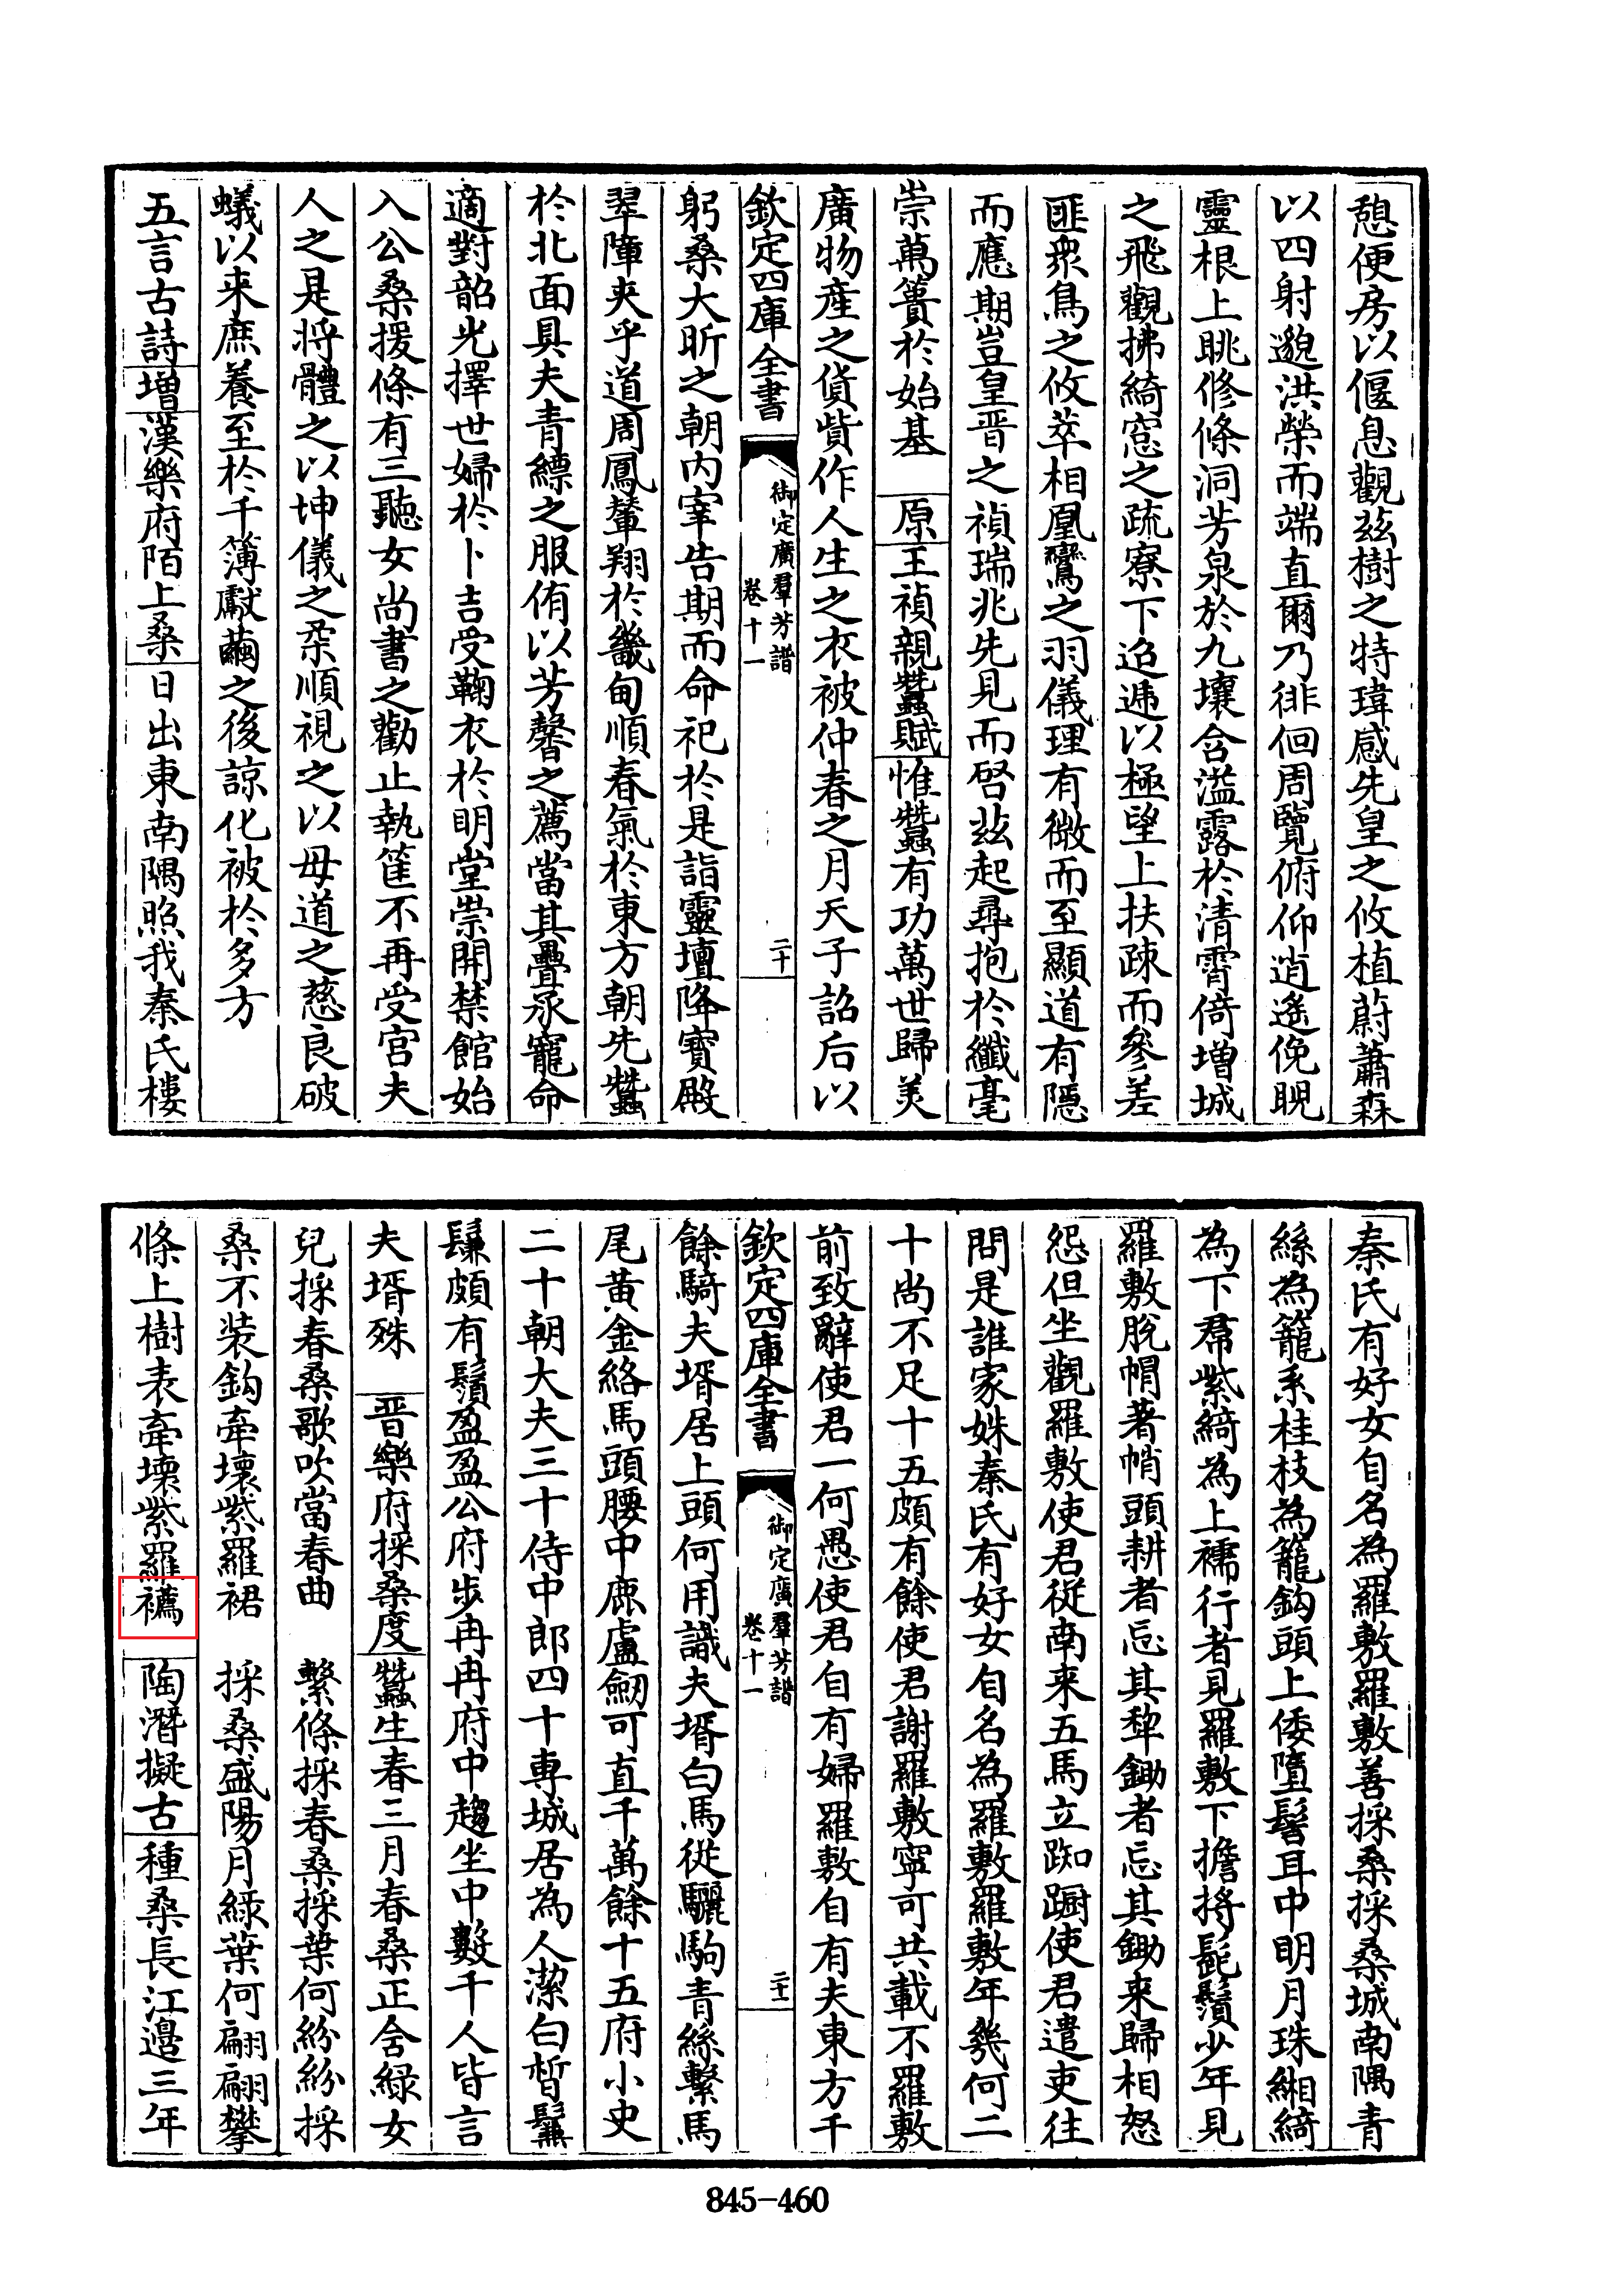 憇便房以偃息觀茲樹之特瑋感先皇之攸植蔚蕭森
以四射邈洪榮而端直爾乃徘徊周覽俯仰逍遙俛睨
靈根上眺修條洞芳泉於九壤含溢露於清霄倚增城
之飛觀拂綺窓之疏寮下迢遞以極望上扶疎而參差
匪衆鳥之攸萃相凰鸞之羽儀理有微而至顯道有隱
而應期豈皇晋之禎瑞兆先見而啓茲起尋抱於纖毫
崇萬簣於始基 原王禎親蠶賦惟蠶有功萬世歸美
廣物產之貨貲作人生之衣被仲春之月天子詔后以
欽定四庫全書
御定廣羣芳譜
卷十一
二十
躬桑大昕之朝内宰告期而命祀於是詣靈壇降寳殿
翠障夾乎道周鳳輦翔於畿甸順春氣於東方朝先蠶
於北面具夫青縹之服侑以芳馨之薦當其疊承寵命
適對韶光擇世婦於卜吉受鞠衣於明堂崇開禁館始
入公桑援條有三聽女尚書之勸止執筐不再受宮夫
人之是將體之以坤儀之柔順視之以母道之慈良破
蟻以来庶養至於千簿獻繭之後諒化被於多方
五言古詩增漢樂府陌上桑日出東南隅照我秦氏樓
秦氏有好女自名為羅敷羅敷善採桑採桑城南隅青
絲為籠系桂枝為籠鈎頭上倭墮髻耳中明月珠緗綺
為下帬紫綺為上襦行者見羅敷下擔捋髭鬚少年見
羅敷脫帽著帩頭耕者忘其犂鋤者忘其鋤来歸相怒
怨但坐觀羅敷使君從南来五馬立踟蹰使君遣吏往
問是誰家姝秦氏有好女自名為羅敷羅敷年幾何二
十尚不足十五頗有餘使君謝羅敷寧可共載不羅敷
前致辭使君一何愚使君自有婦羅敷自有夫東方千
欽定四庫全書
御定廣羣芳譜
卷十一
二十一
餘騎夫壻居上頭何用識夫壻白馬從驪駒青絲繫馬
尾黃金絡馬頭腰中鹿盧劒可直千萬餘十五府小史
二十朝大夫三十侍中郎四十專城居為人潔白晳鬑
鬑頗有鬚盈盈公府步冉冉府中趨坐中數千人皆言
夫壻殊 晋樂府採桑度蠶生春三月春桑正含綠女
兒採春桑歌吹當春曲 繫條採春桑採葉何紛紛採
桑不装鈎牽壞紫羅裙 採桑盛陽月緑葉何翩翩攀
條上樹表牽壊紫羅襦 陶潛擬古種桑長江邊三年
845-460